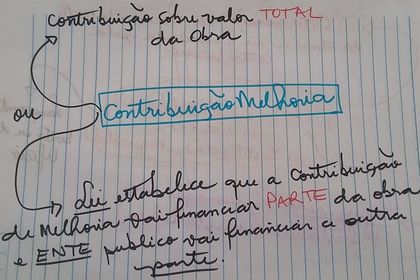 Contribuição sobre valor TOTAL
da Obra
ou
Contribuição Melhoria
Lei estabelece que a Contribuição
de Melhoria vai financiar PARTE da obra
e ENTE publico vai financiar a outra
parte.